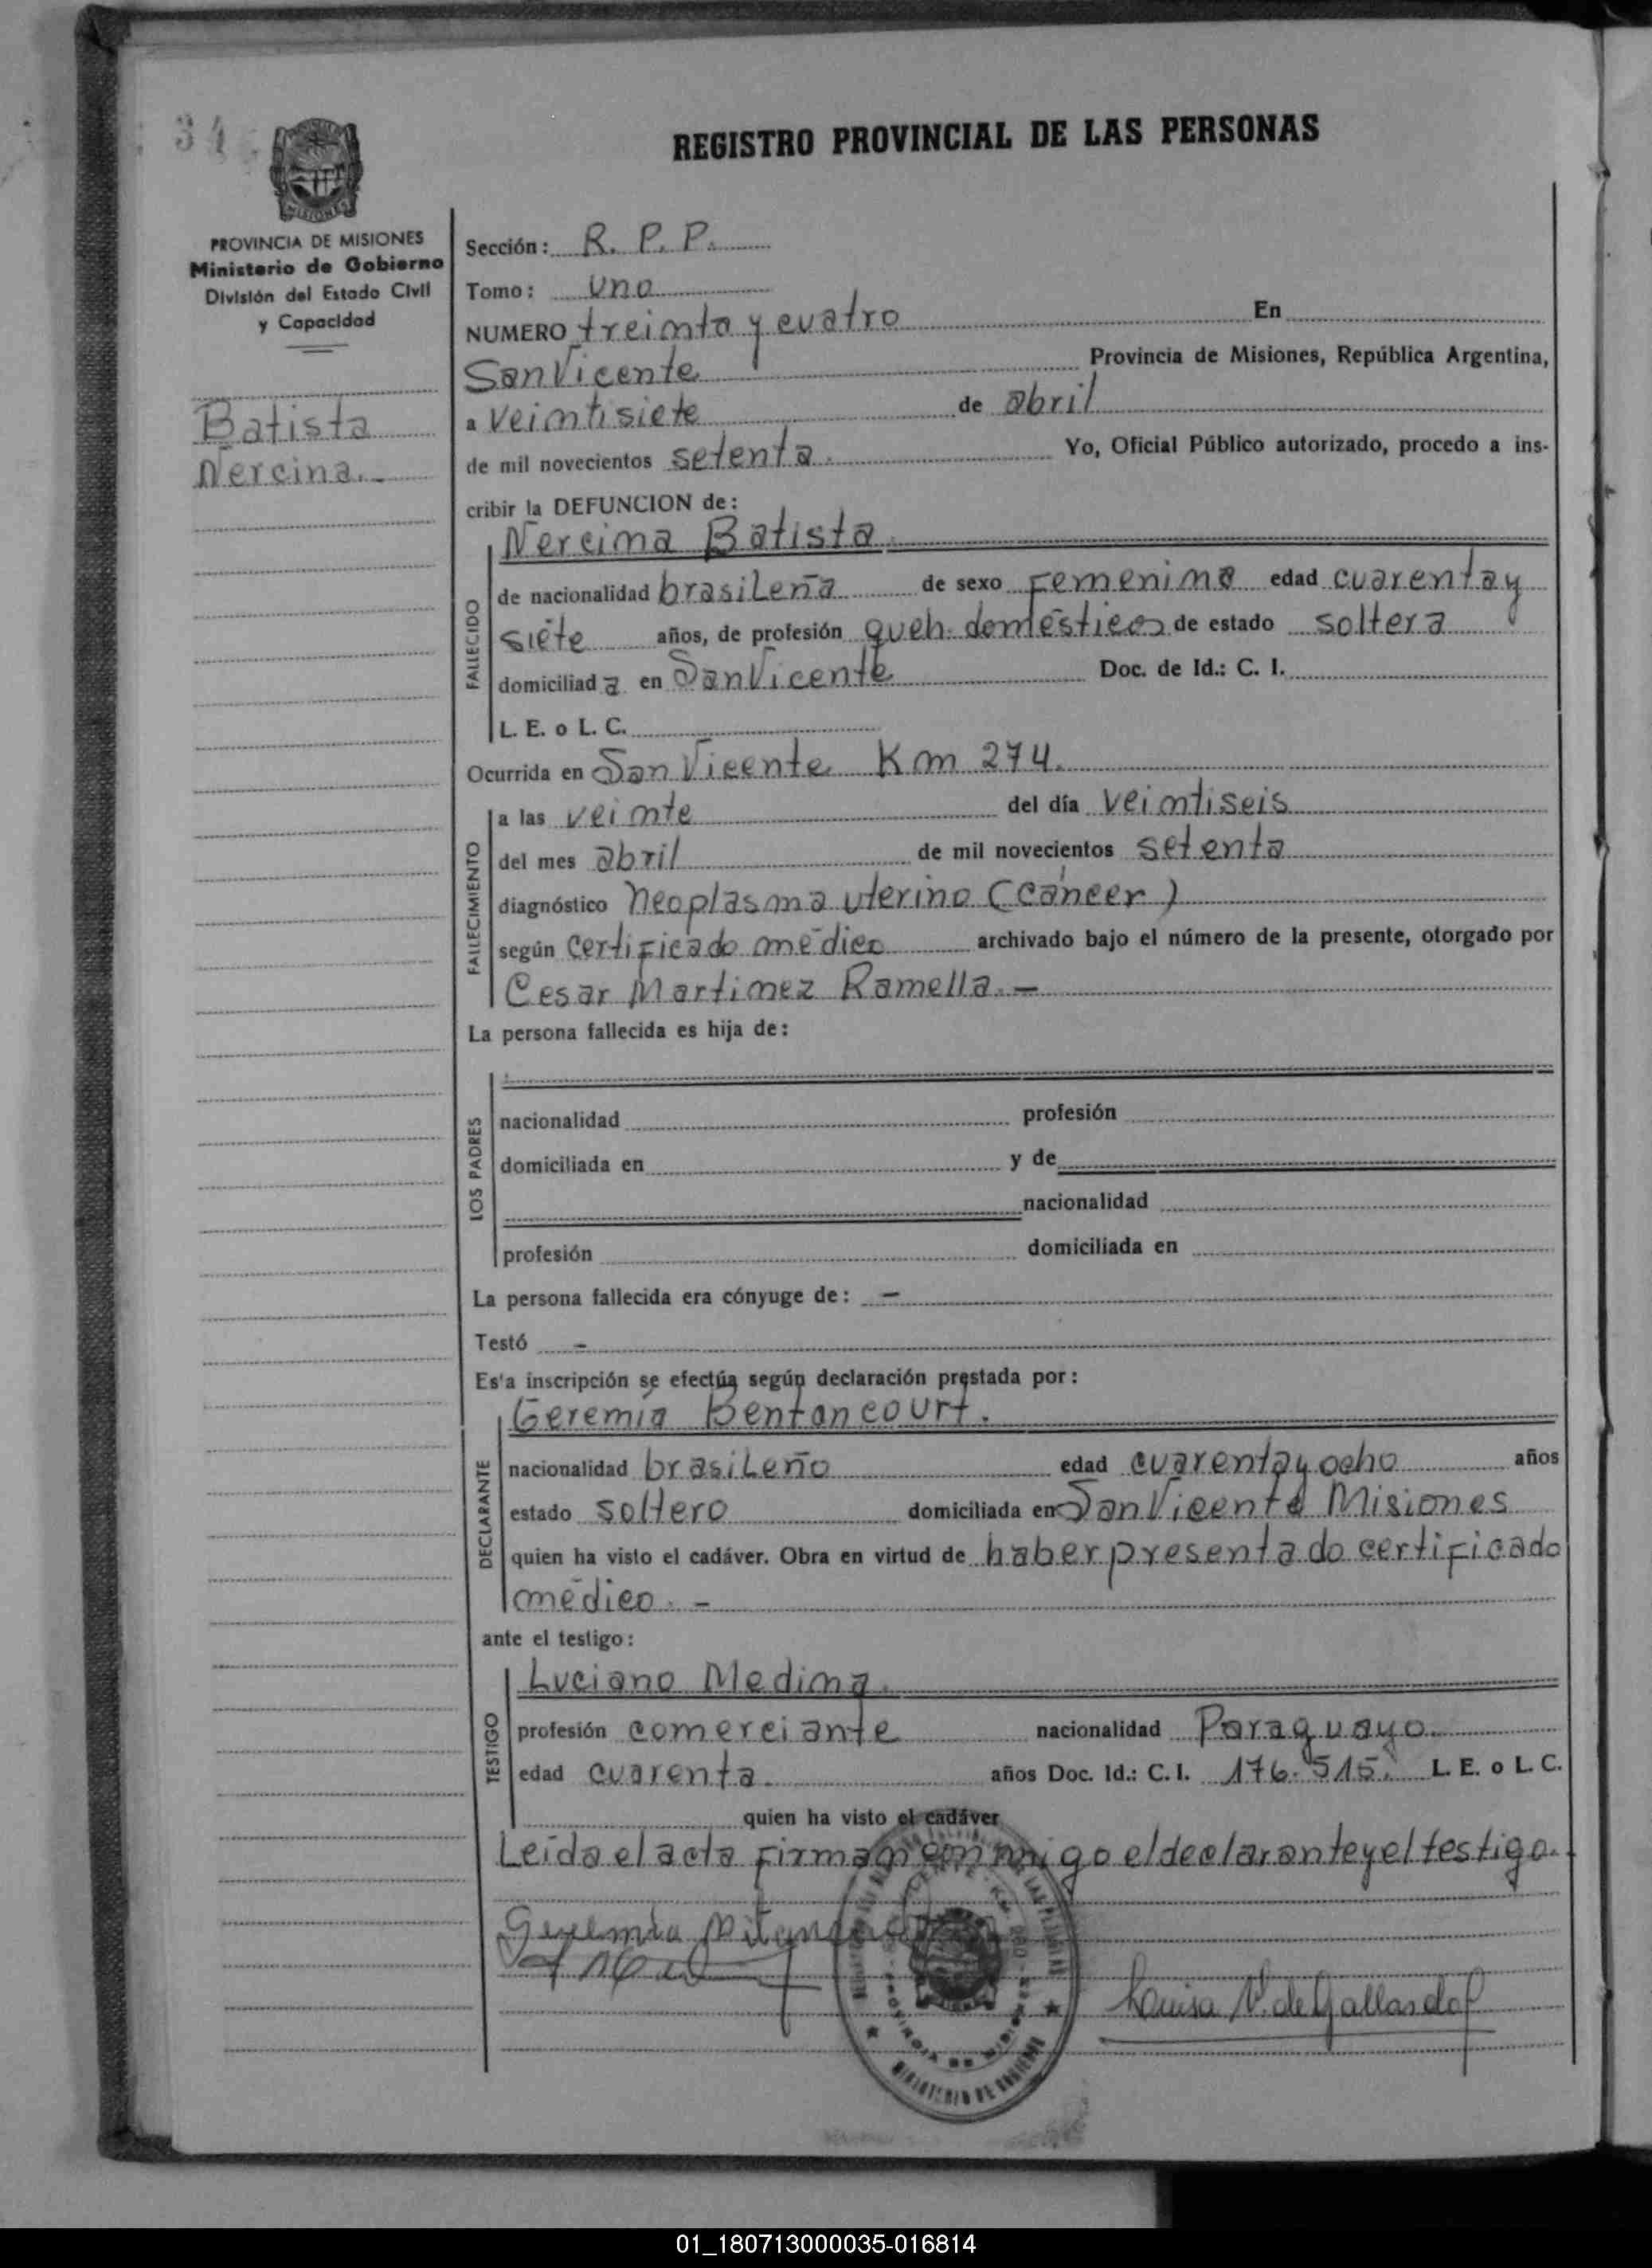 34
REGISTRO PROVINCIAL DE LAS PERSONAS
MISIONES
PROVINCIA DE MISIONES
Ministerio de Gobierno
División del Estado Civil
y Capacidad
Batista
Nercina.-
Sección: R. P. P.
Tomo: uno
NUMERO treinta y cuatro En
San Vicente Provincia de Misiones, República Argentina,
a veintisiete de abril
de mil novecientos setenta. Yo, Oficial Público autorizado, procedo a ins-
cribir la DEFUNCION de:
Nercina Batista.
FALLECIDO
de nacionalidad brasileña de sexo femenina edad cuarenta y
siete años, de profesión queh. domésticos de estado soltera
domiciliad a en San Vicente Doc. de Id.: C. I.
L. E. o L. C.
Ocurrida en San Vicente Km 274.
FALLECIMIENTO
a las veinte del día veintiseis
del mes abril de mil novecientos setenta
diagnóstico neoplasma uterino (cáncer)
según certificado médico archivado bajo el número de la presente, otorgado por
Cesar Martinez Ramella.-
La persona fallecida es hija de:
LOS PADRES
nacionalidad profesión
domiciliada en y de
nacionalidad
profesión domiciliada en
La persona fallecida era cónyuge de: -
Testó -
Es'a inscripción se efectúa según declaración prestada por:
Geremía Bentancourt.
DECLARANTE
nacionalidad brasileño edad cuarenta y ocho años
estado soltero domiciliada en San Vicente Misiones
quien ha visto el cadáver. Obra en virtud de haber presentado certificado
médico. -
ante el testigo:
Luciano Medina.
TESTIGO
profesión comerciante nacionalidad Paraguayo
edad cuarenta. años Doc. Id.: C. I. 176.515. L. E. o L. C.
quien ha visto el cadáver
Leida el acta firman conmigo el declarante y el testigo.
Geremia
Louisa V. de Gallardo
MINISTERIO DE GOBIERNO
01_180713000035-016814